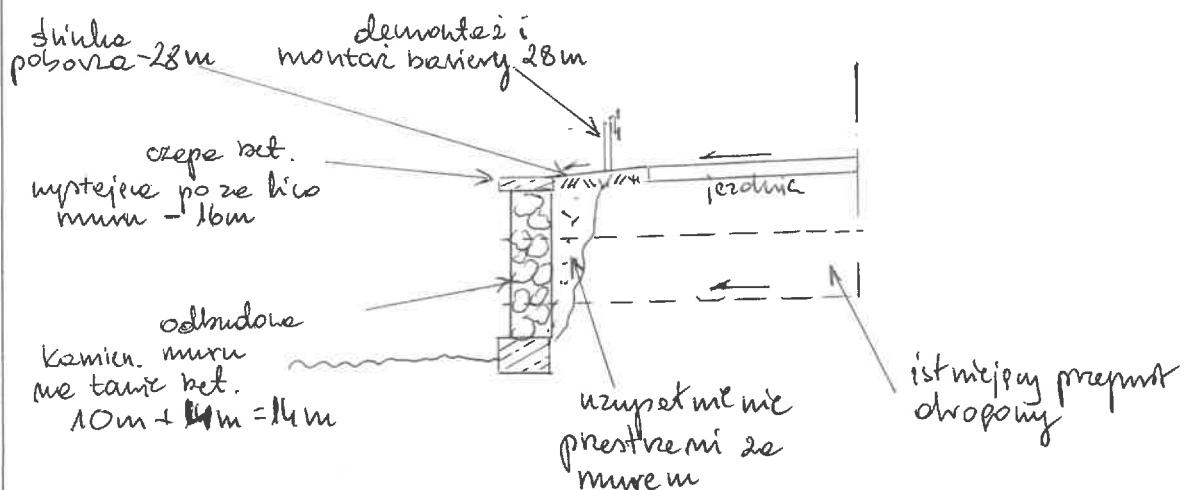 ścinka
pobocza - 28m
demontaż i
montaż bariery 28m
czepa bet.
wystająca poza lico
muru - 16m
jezdnia
odbudowa
kamien. muru
na ławie bet.
10m + 4m = 14m
uzupełnienie
przestrzeni za
murem
istniejący przepust
drogowy